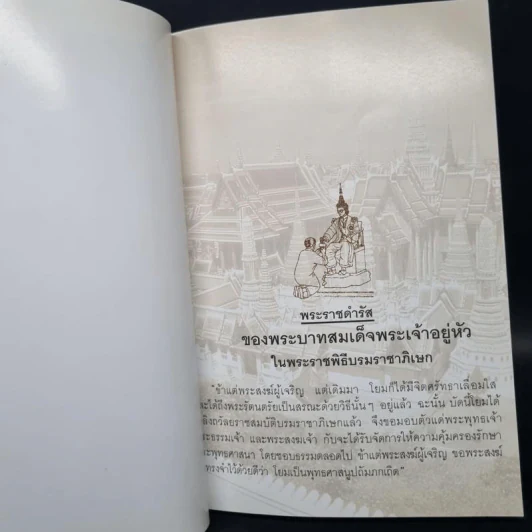 พระราชดำรัส
ของพระบาทสมเด็จพระเจ้าอยู่หัว
ในพระราชพิธีบรมราชาภิเษก
"ข้าแต่พระสงฆ์ผู้เจริญ แต่เดิมมา โยมก็ได้มีจิตศรัทธาเลื่อมใส
ละได้ถึงพระรัตนตรัยเป็นสรณะด้วยวิธีนั้นๆ อยู่แล้ว ฉะนั้น บัดนี้โยมได้
ลิงถวัลยราชสมบัติบรมราชาภิเษกแล้ว จึงขอมอบตัวแด่พระพุทธเจ้า
ระธรรมเจ้า และพระสงฆเจ้า กับจะได้รับจัดการให้ความคุ้มครองรักษา
ระพุทธศาสนา โดยชอบธรรมตลอดไป ข้าแต่พระสงฆ์ผู้เจริญ ขอพระสงฆ์
ทรงจำไว้ด้วยดีว่า โยมเป็นพุทธศาสนูปถัมภกเถิด"